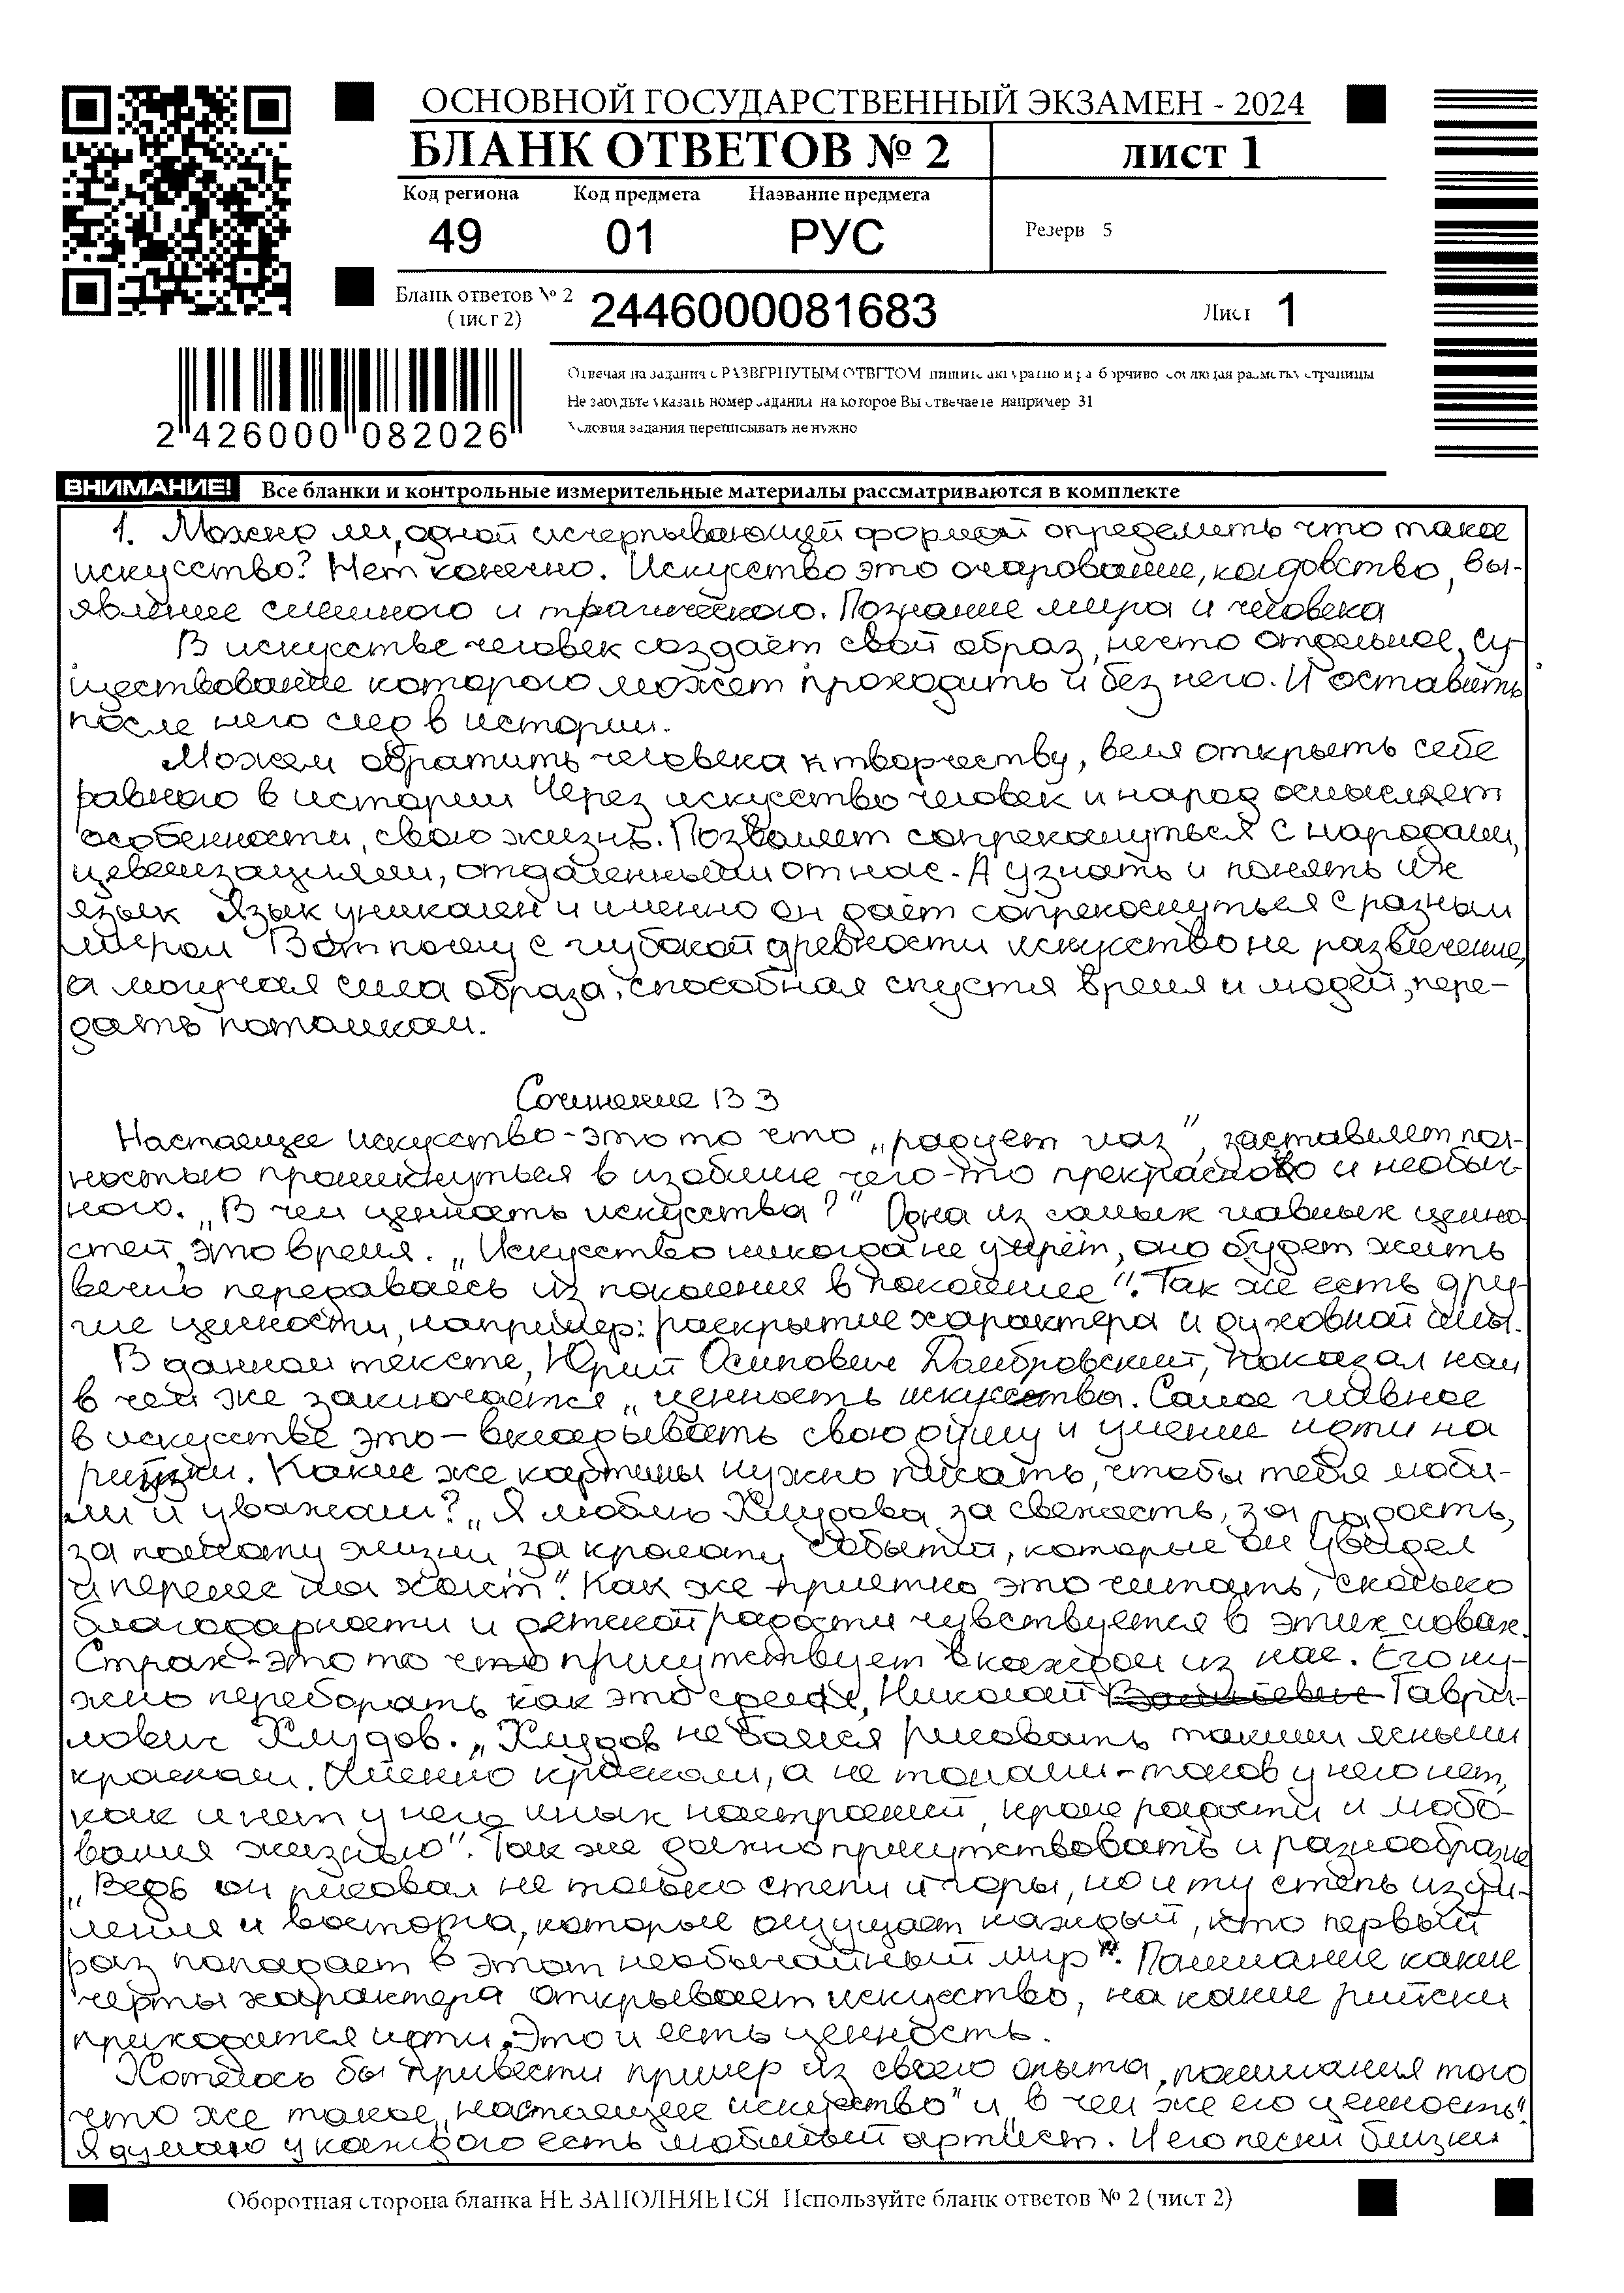 ОСНОВНОЙ ГОСУДАРСТВЕННЫЙ ЭКЗАМЕН - 2024
БЛАНК ОТВЕТОВ № 2
ЛИСТ 1
Код региона Код предмета Название предмета
49 01 РУС
Резерв 5
Бланк ответов № 2 (лист 2) 2446000081683 Лист 1
2 426000 082026
Отвечая на задания с РАЗВЕРНУТЫМ ОТВЕТОМ пишите аккуратно и разборчиво соблюдая разметку страницы
Не забудьте указать номер задания на которое Вы отвечаете например 31
Условия задания переписывать не нужно
ВНИМАНИЕ! Все бланки и контрольные измерительные материалы рассматриваются в комплекте
1. Можно ли, одной исчерпывающей формой определить что такое
искусство? Нет конечно. Искусство это очарование, колдовство, вы-
явление смешного и трагического. Познание мира и человека
В искусстве человек создаёт свой образ, нечто отдельное, су-
ществование которого может проходить и без него. И оставить
после него след в истории.
Можем обратить человека к творчеству, веля открыть себе
равного в истории Через искусство человек и народ осмысляет
особенности, свою жизнь. Позволяет соприкоснуться с народами,
цивилизациями, отдаленными от нас. А узнать и понять их
язык Язык уникален и именно он даёт соприкоснуться с разным
миром Вот почему с глубокой древности искусство не развлечение,
а могучая сила образа, способная спустя время и людей, пере-
дать потомкам.
Сочинение 13 3
Настоящее искусство-это то что „радует глаз", заставляет пол-
ностью проникнуться в изобилие чего-то прекрасного и необыч-
ного. „В чем ценность искусства?" Одна из самых главных ценно
стей, это время. „Искусство никогда не умрёт, оно будет жить
вечно передаваясь из поколения в поколение". Так же есть дру-
гие ценности, например: раскрытие характера и духовной силы.
В данном тексте, Юрий Осипович Домбровский, показал нам
в чем же заключается „ценность искусства. Самое главное
в искусстве это - вкладывать свою душу и умение идти на
риски. Какие же картины нужно писать, чтобы тебя люби-
ли и уважали? „Я люблю Хлудова за свежесть, за радость,
за полноту жизни, за красоту событий, которые он увидел
и перенес на холст". Как же приятно это читать, сколько
благодарности и детской радости чувствуется в этих словах.
Страх-это то что присутствует в каждом из нас. Его ну-
жно перебороть как это сделал, Николай Гаври-
лович Хлудов. „Хлудов не боялся рисовать такими ясными
красками. Именно красками, а не тонами-тонов у него нет,
как и нет у него иных настроений, кроме радости и любо-
вания жизнью". Так же должно присутствовать и разнообразие
„Ведь он рисовал не только степи и горы, но и ту степь изум-
ления и восторга, которые ощущает каждый, кто первый
раз попадает в этот необычайный мир". Понимание какие
черты характера открывает искусство, на какие риски
приходится идти. Это и есть ценность.
Хотелось бы привести пример из своего опыта, понимания того
что же такое „настоящее искусство" и „в чем же его ценность"
Я думаю у каждого есть любимый артист. Чего песни близки
Оборотная сторона бланка НЕ ЗАПОЛНЯЕТСЯ Используйте бланк ответов № 2 (лист 2)